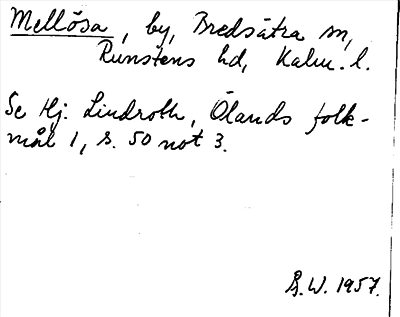 Mellösa, by, Bredsätra sn,
Runstens hd, Kalm. l.
Se Hj. Lindroth, Ölands folk-
mål 1, s. 50 not 3.
B.W. 1957.